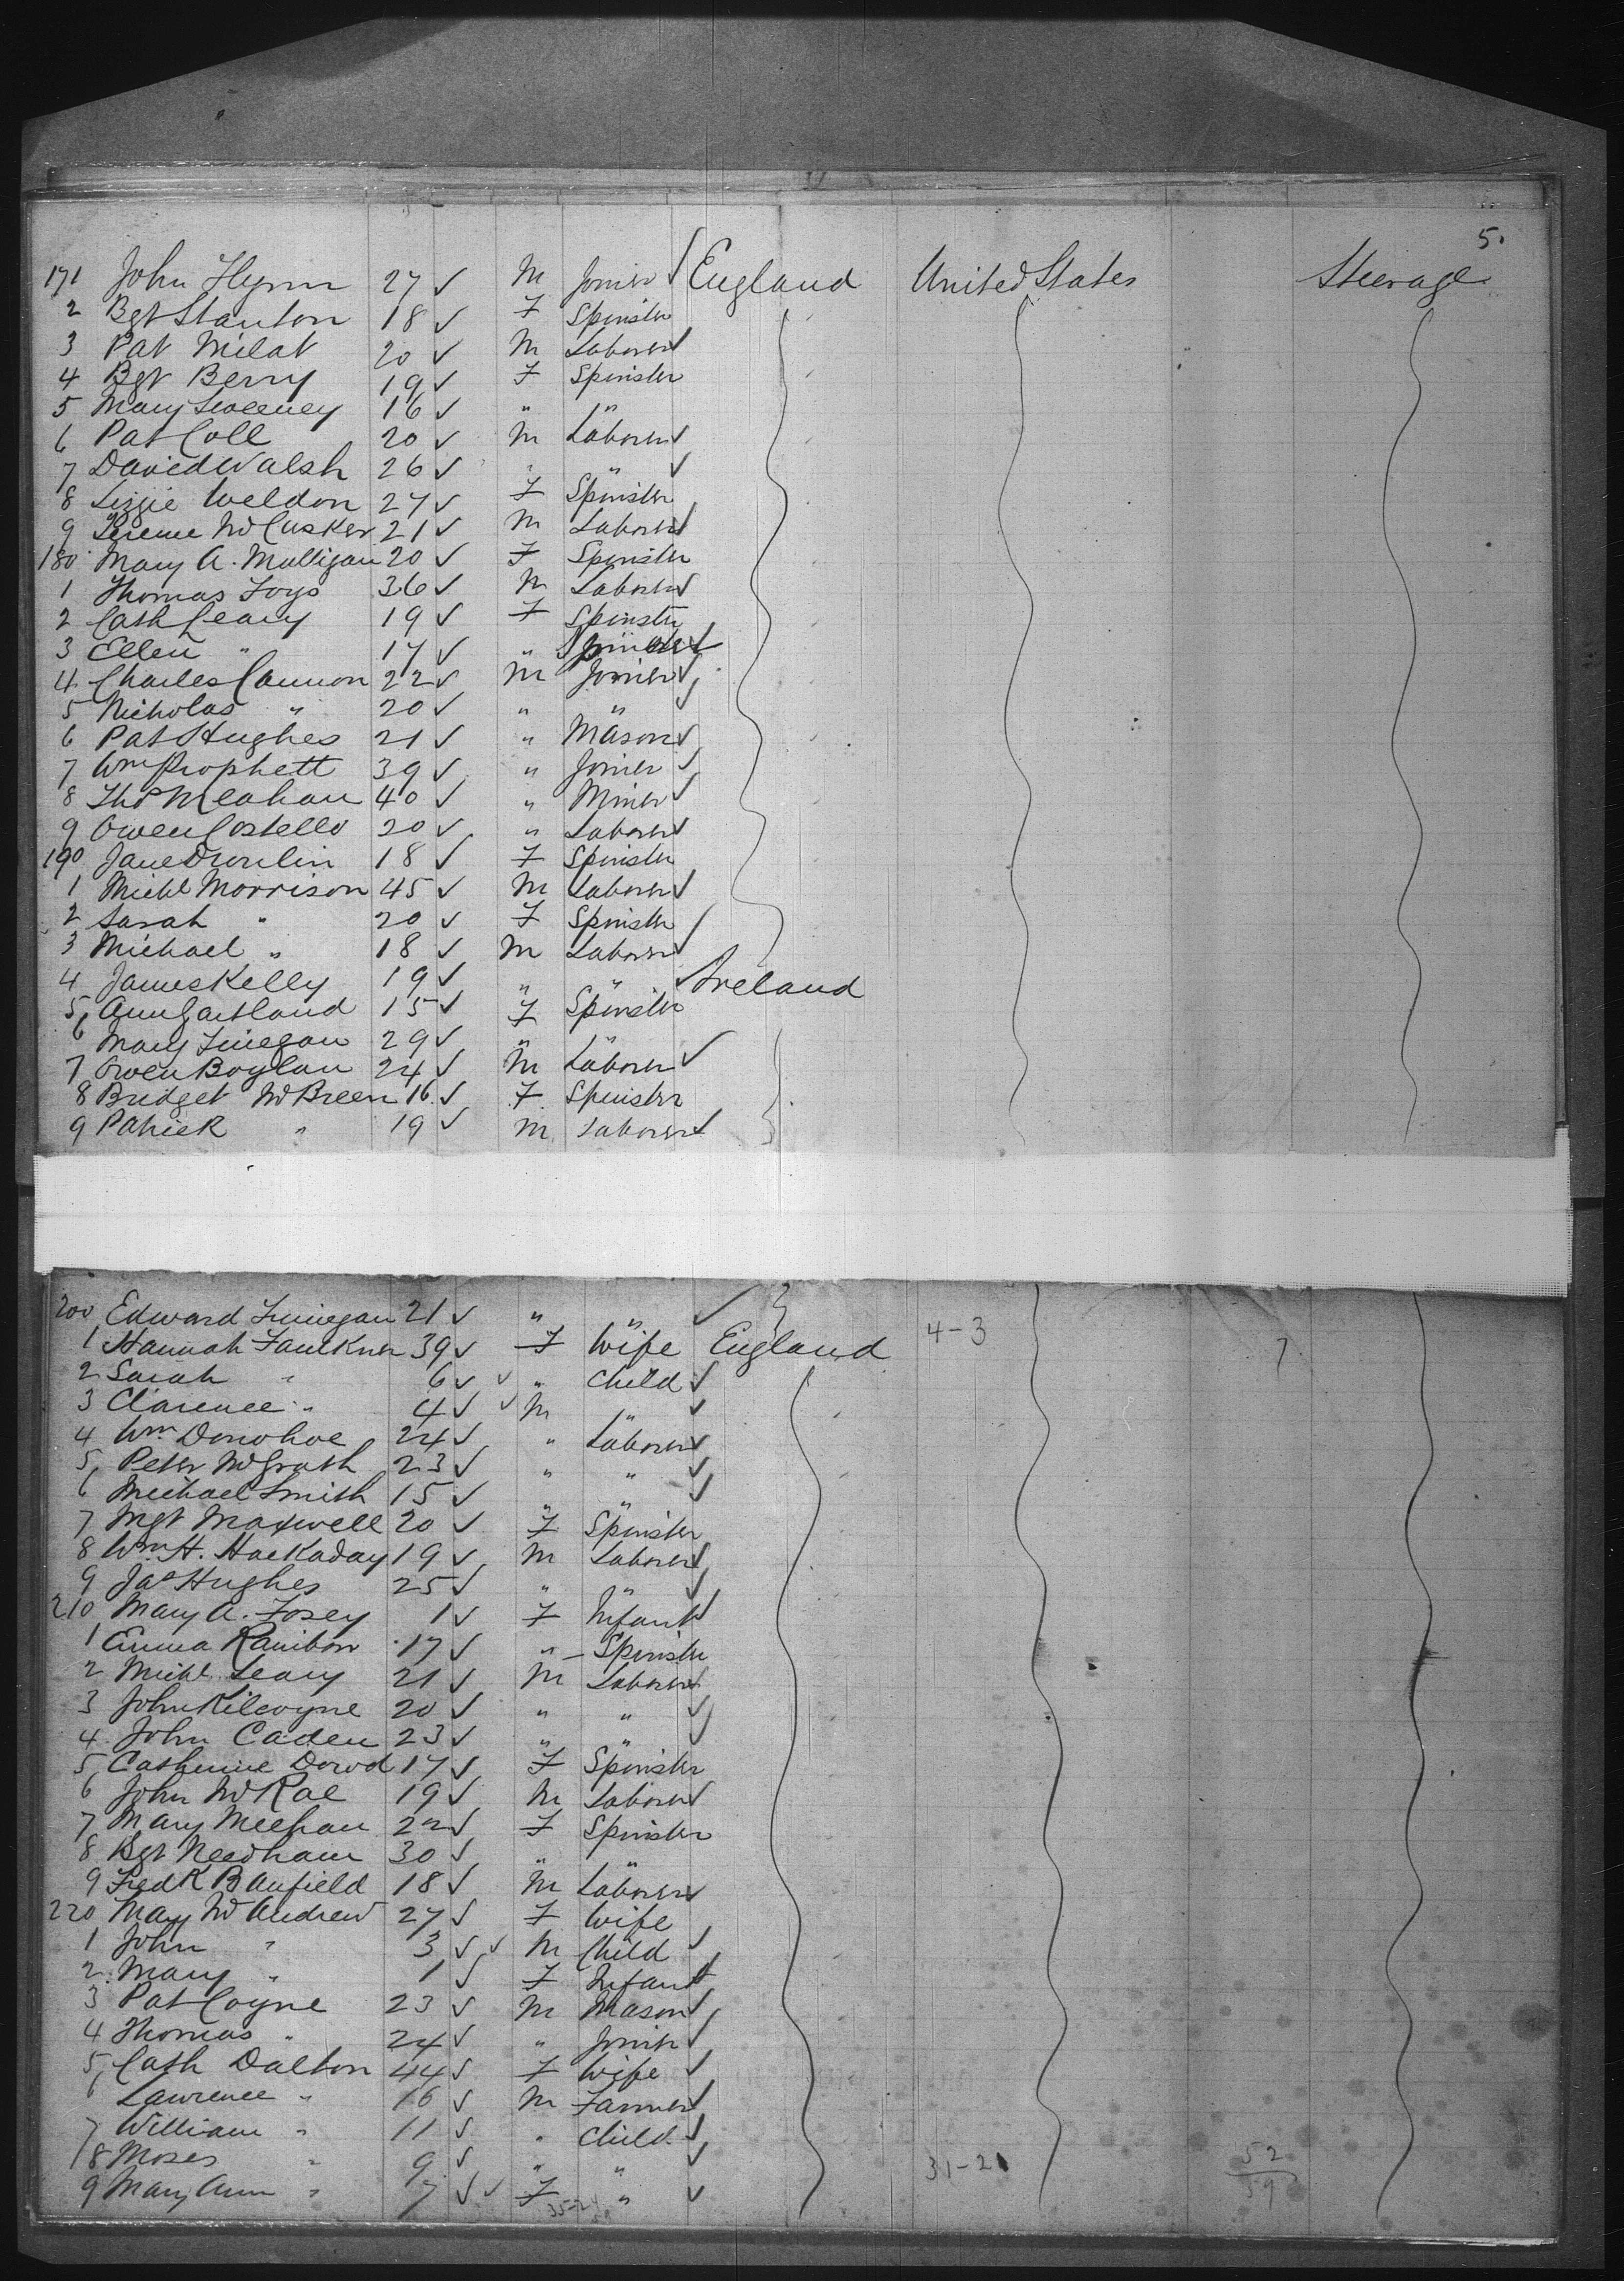 5.
171 John Flynn 27 ✓ M Joiner ✓ England United States Steerage
2 Bgt Stanton 18 ✓ F Spinster
3 Pat Milat 20 ✓ M Laborer ✓
4 Bgt Berry 19 ✓ F Spinster
5 Mary Sweeney 16 ✓ " "
6 Pat Coll 20 ✓ M Laborer ✓
7 David Walsh 26 ✓ " " ✓
8 Lizzie Weldon 27 ✓ F Spinster
9 McCusker 21 ✓ M Laborer ✓
180 Mary A. Mulligan 20 ✓ F Spinster
1 Thomas 36 ✓ M Laborer ✓
2 Cath Leary 19 ✓ F Spinster
3 Ellen " 17 ✓ "
4 Charles Cannon 22 ✓ M Joiner ✓
5 Nicholas " 20 ✓ " " ✓
6 Pat Hughes 21 ✓ " Mason ✓
7 Wm Prophett 39 ✓ " Joiner ✓
8 Thos Meahan 40 ✓ " Miner ✓
9 Owen Costello 20 ✓ " Laborer ✓
190 Jane 18 ✓ F Spinster
1 Michl Morrison 45 ✓ M Laborer ✓
2 Sarah " 20 ✓ F Spinster
3 Michael " 18 ✓ M Laborer ✓
4 James Kelly 19 ✓ " " ✓ Ireland
5 Ann Gartland 15 ✓ F Spinster
6 Mary Finegan 29 ✓ " "
7 Owen Boylan 24 ✓ M Laborer ✓
8 Bridget McBreen 16 ✓ F Spinster
9 Patrick " 19 ✓ M Laborer ✓
200 Edward Finnegan 21 ✓ " " ✓
1 Hannah Faulkner 39 ✓ F Wife England 4-3 7
2 Sarah " 6 ✓ ✓ " Child ✓
3 Clarence " 4 ✓ ✓ M " ✓
4 Wm Donohoe 24 ✓ " Laborer ✓
5 Peter McGrath 23 ✓ " " ✓
6 Michael Smith 15 ✓ " " ✓
7 Mgt Maxwell 20 ✓ F Spinster
8 Wm H. Hackaday 19 ✓ M Laborer ✓
9 Jas Hughes 25 ✓ " " ✓
210 Mary A. 1 ✓ F Infant ✓
1 Emma 17 ✓ " Spinster
2 Michl Leary 21 ✓ M Laborer ✓
3 John Kilcoyne 20 ✓ " " ✓
4 John Caden 23 ✓ " " ✓
5 Catherine Dowd 17 ✓ F Spinster
6 John McRae 19 ✓ M Laborer ✓
7 Mary Meehan 22 ✓ F Spinster
8 Bgt Needham 30 ✓ " "
9 Fredk Banfield 18 ✓ M Laborer ✓
220 Mary McAndrew 27 ✓ F Wife
1 John " 3 ✓ ✓ M Child ✓
2 Mary " 1 ✓ F Infant ✓
3 Pat Coyne 23 ✓ M Mason ✓
4 Thomas " 24 ✓ " Joiner ✓
5 Cath Dalton 44 ✓ F Wife ✓
6 Lawrence " 16 ✓ M Farmer ✓
7 William " 11 ✓ " Child ✓
8 Moses " 9 ✓ " " ✓ 31-21 52
9 Mary Ann " 7 ✓ ✓ F " ✓ 59